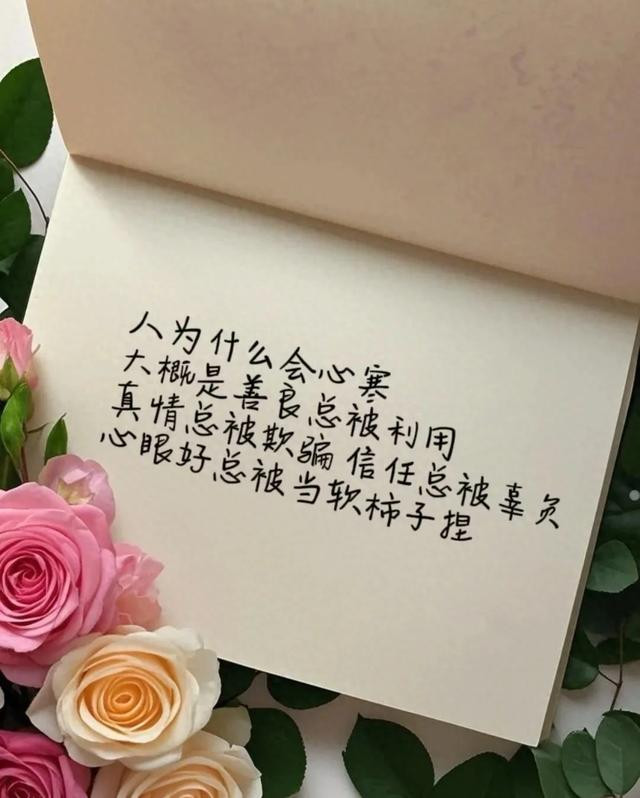 人为什么会心寒
大概是善良总被利用
真情总被欺骗 信任总被辜负
心眼好总被当软柿子捏